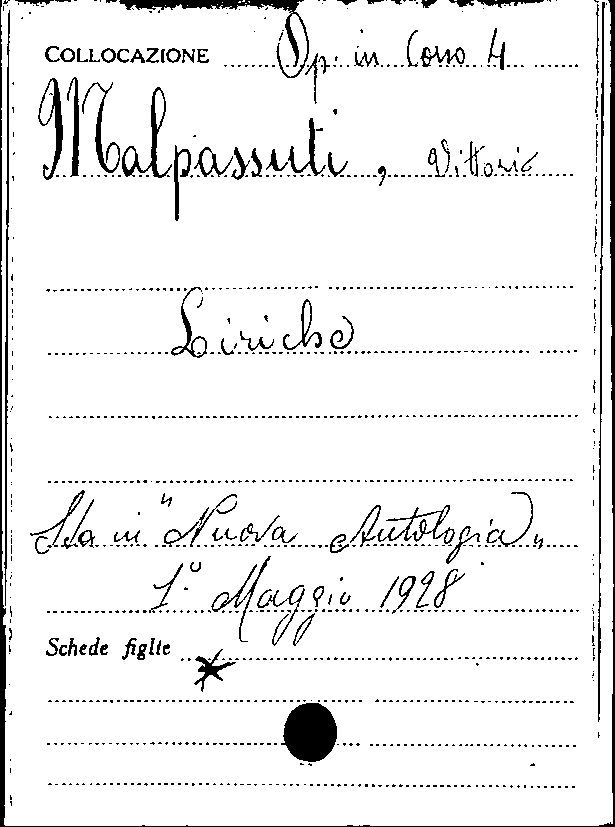 COLLOCAZIONE Op. in Corso 4
Malpassuti, Vittorio
Liriche
Sta in "Nuova Antologia"
1.° Maggio 1928
Schede figlie